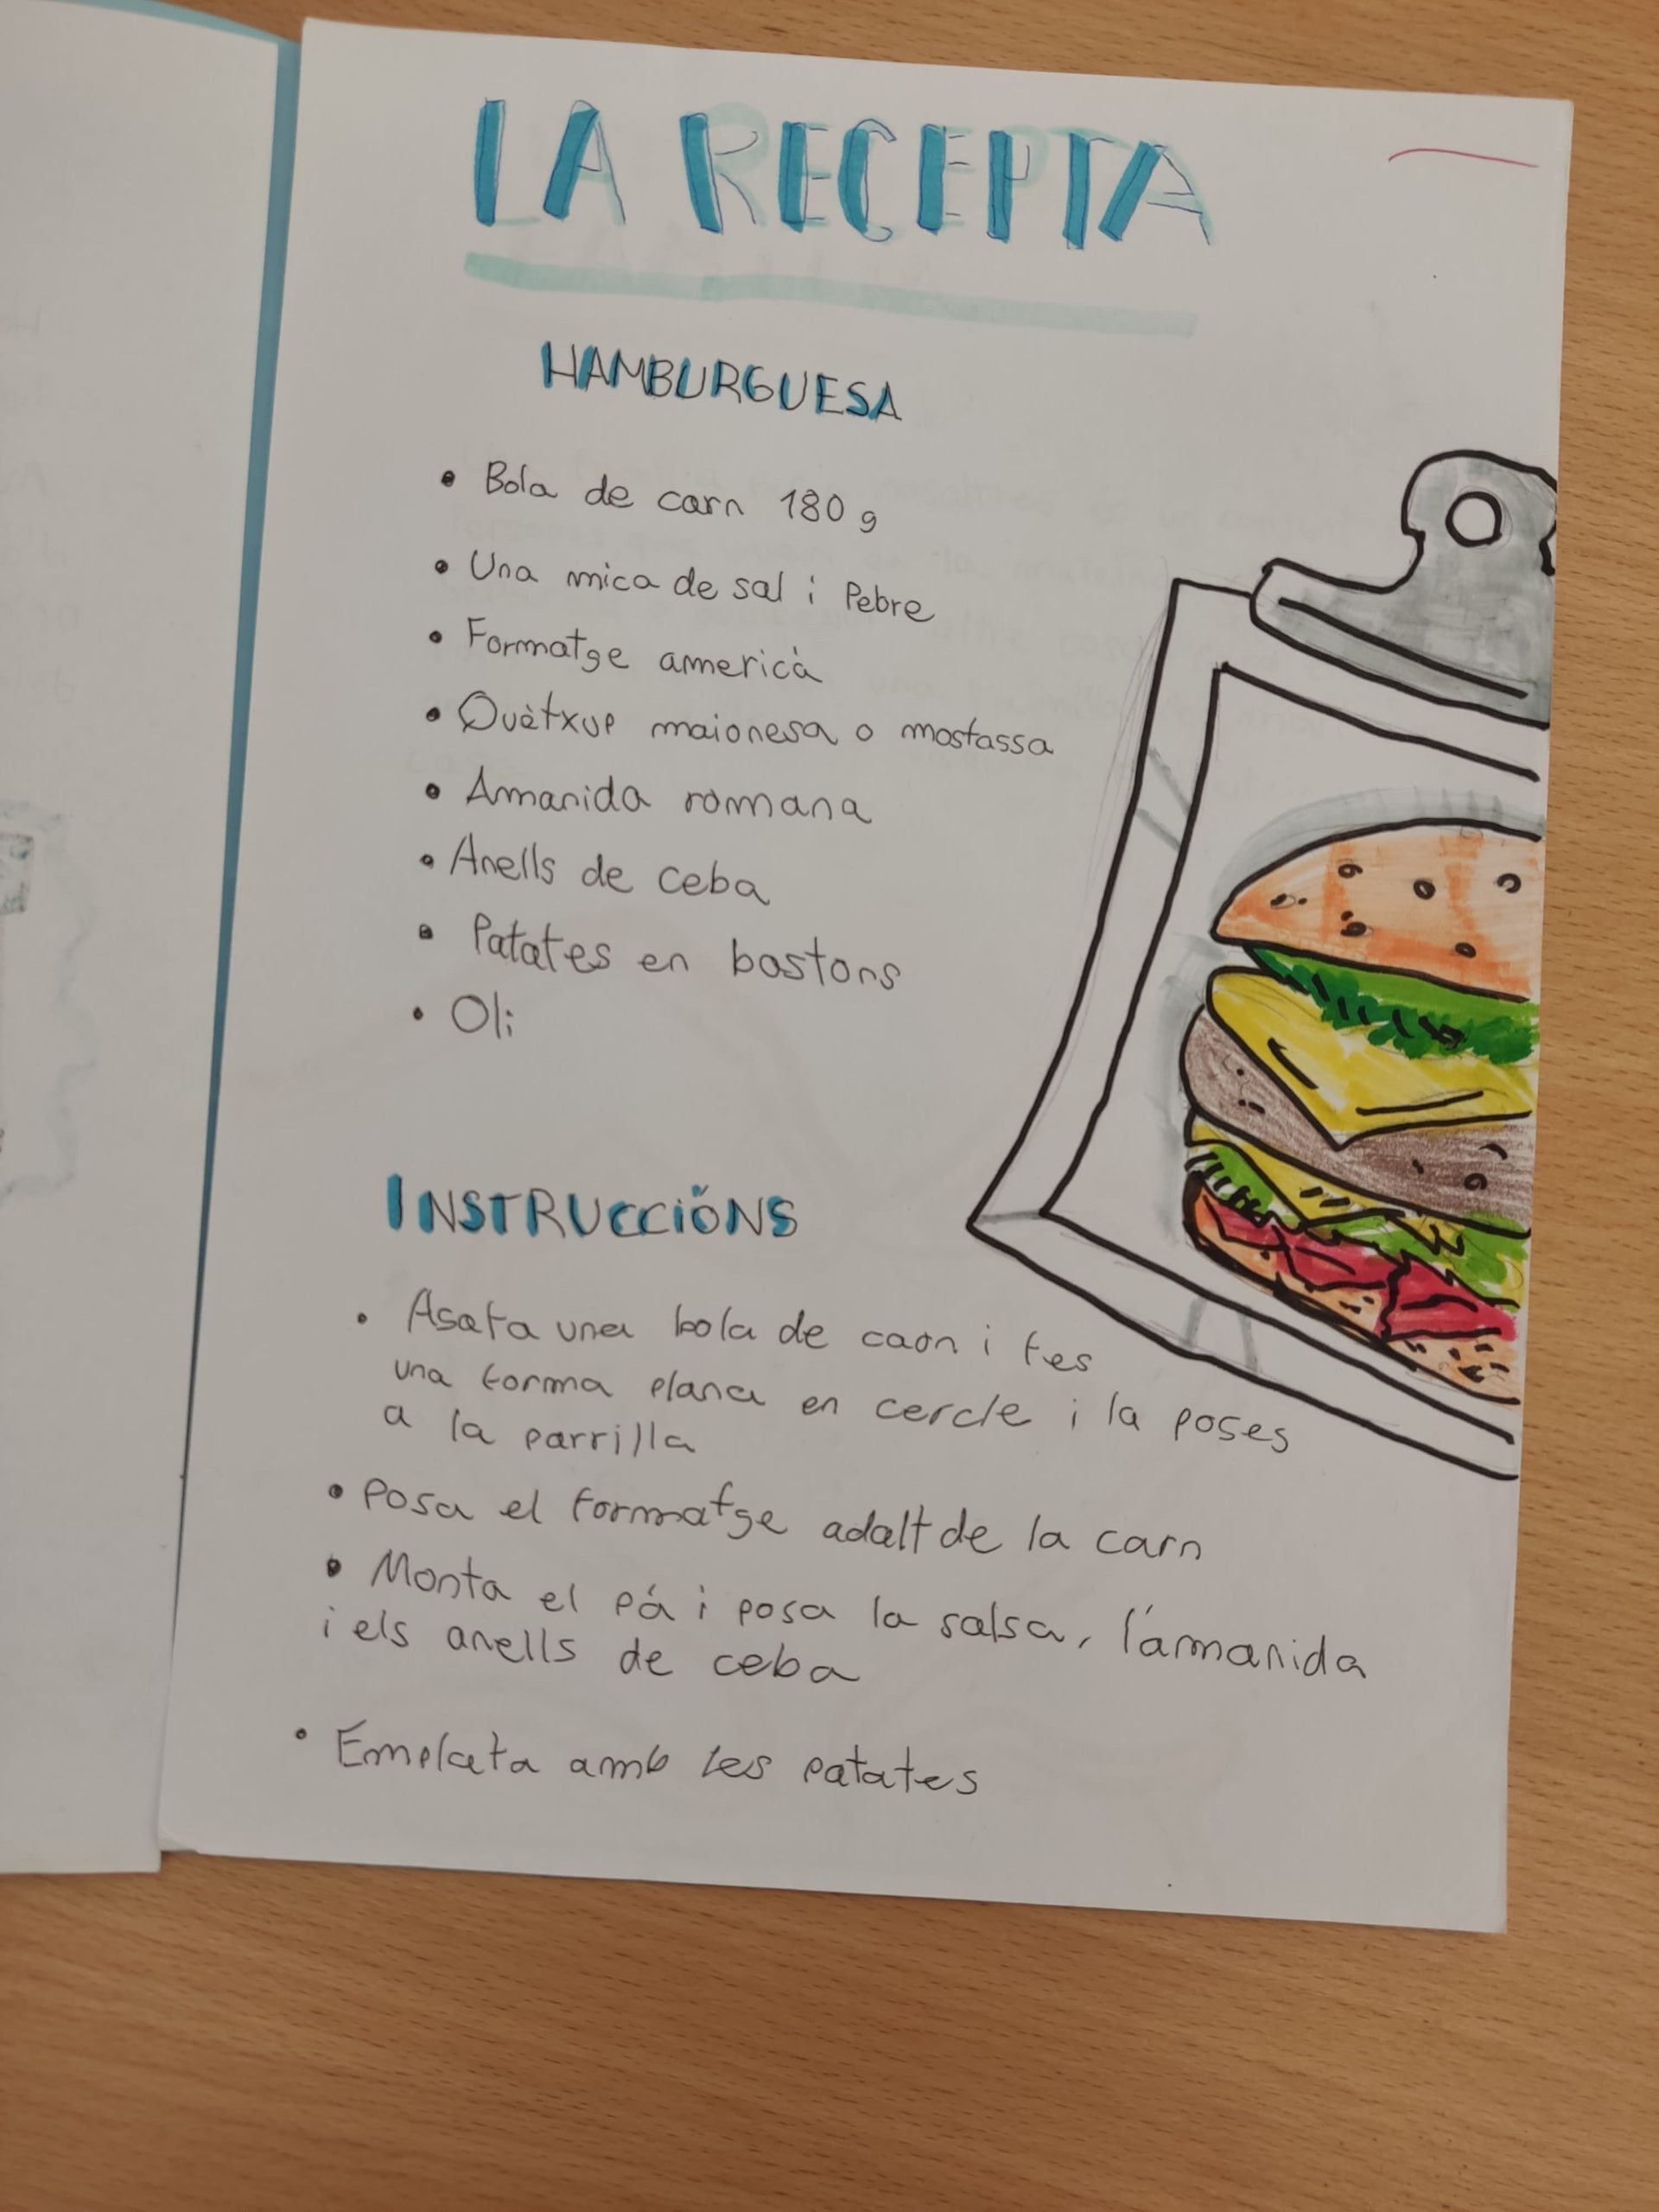 LA RECEPTA
HAMBURGUESA
• Bola de carn 180 g
• Una mica de sal i Pebre
• Formatge americà
• Quètxup maionesa o mostassa
• Amanida romana
• Anells de ceba
• Patates en bastons
• Oli
INSTRUCCIÓNS
• Asafa una bola de carn i fes
una forma plana en cercle i la poses
a la parrilla
• Posa el formatge adalt de la carn
• Monta el pá i posa la salsa, l'amanida
i els anells de ceba
• Emplata amb les patates